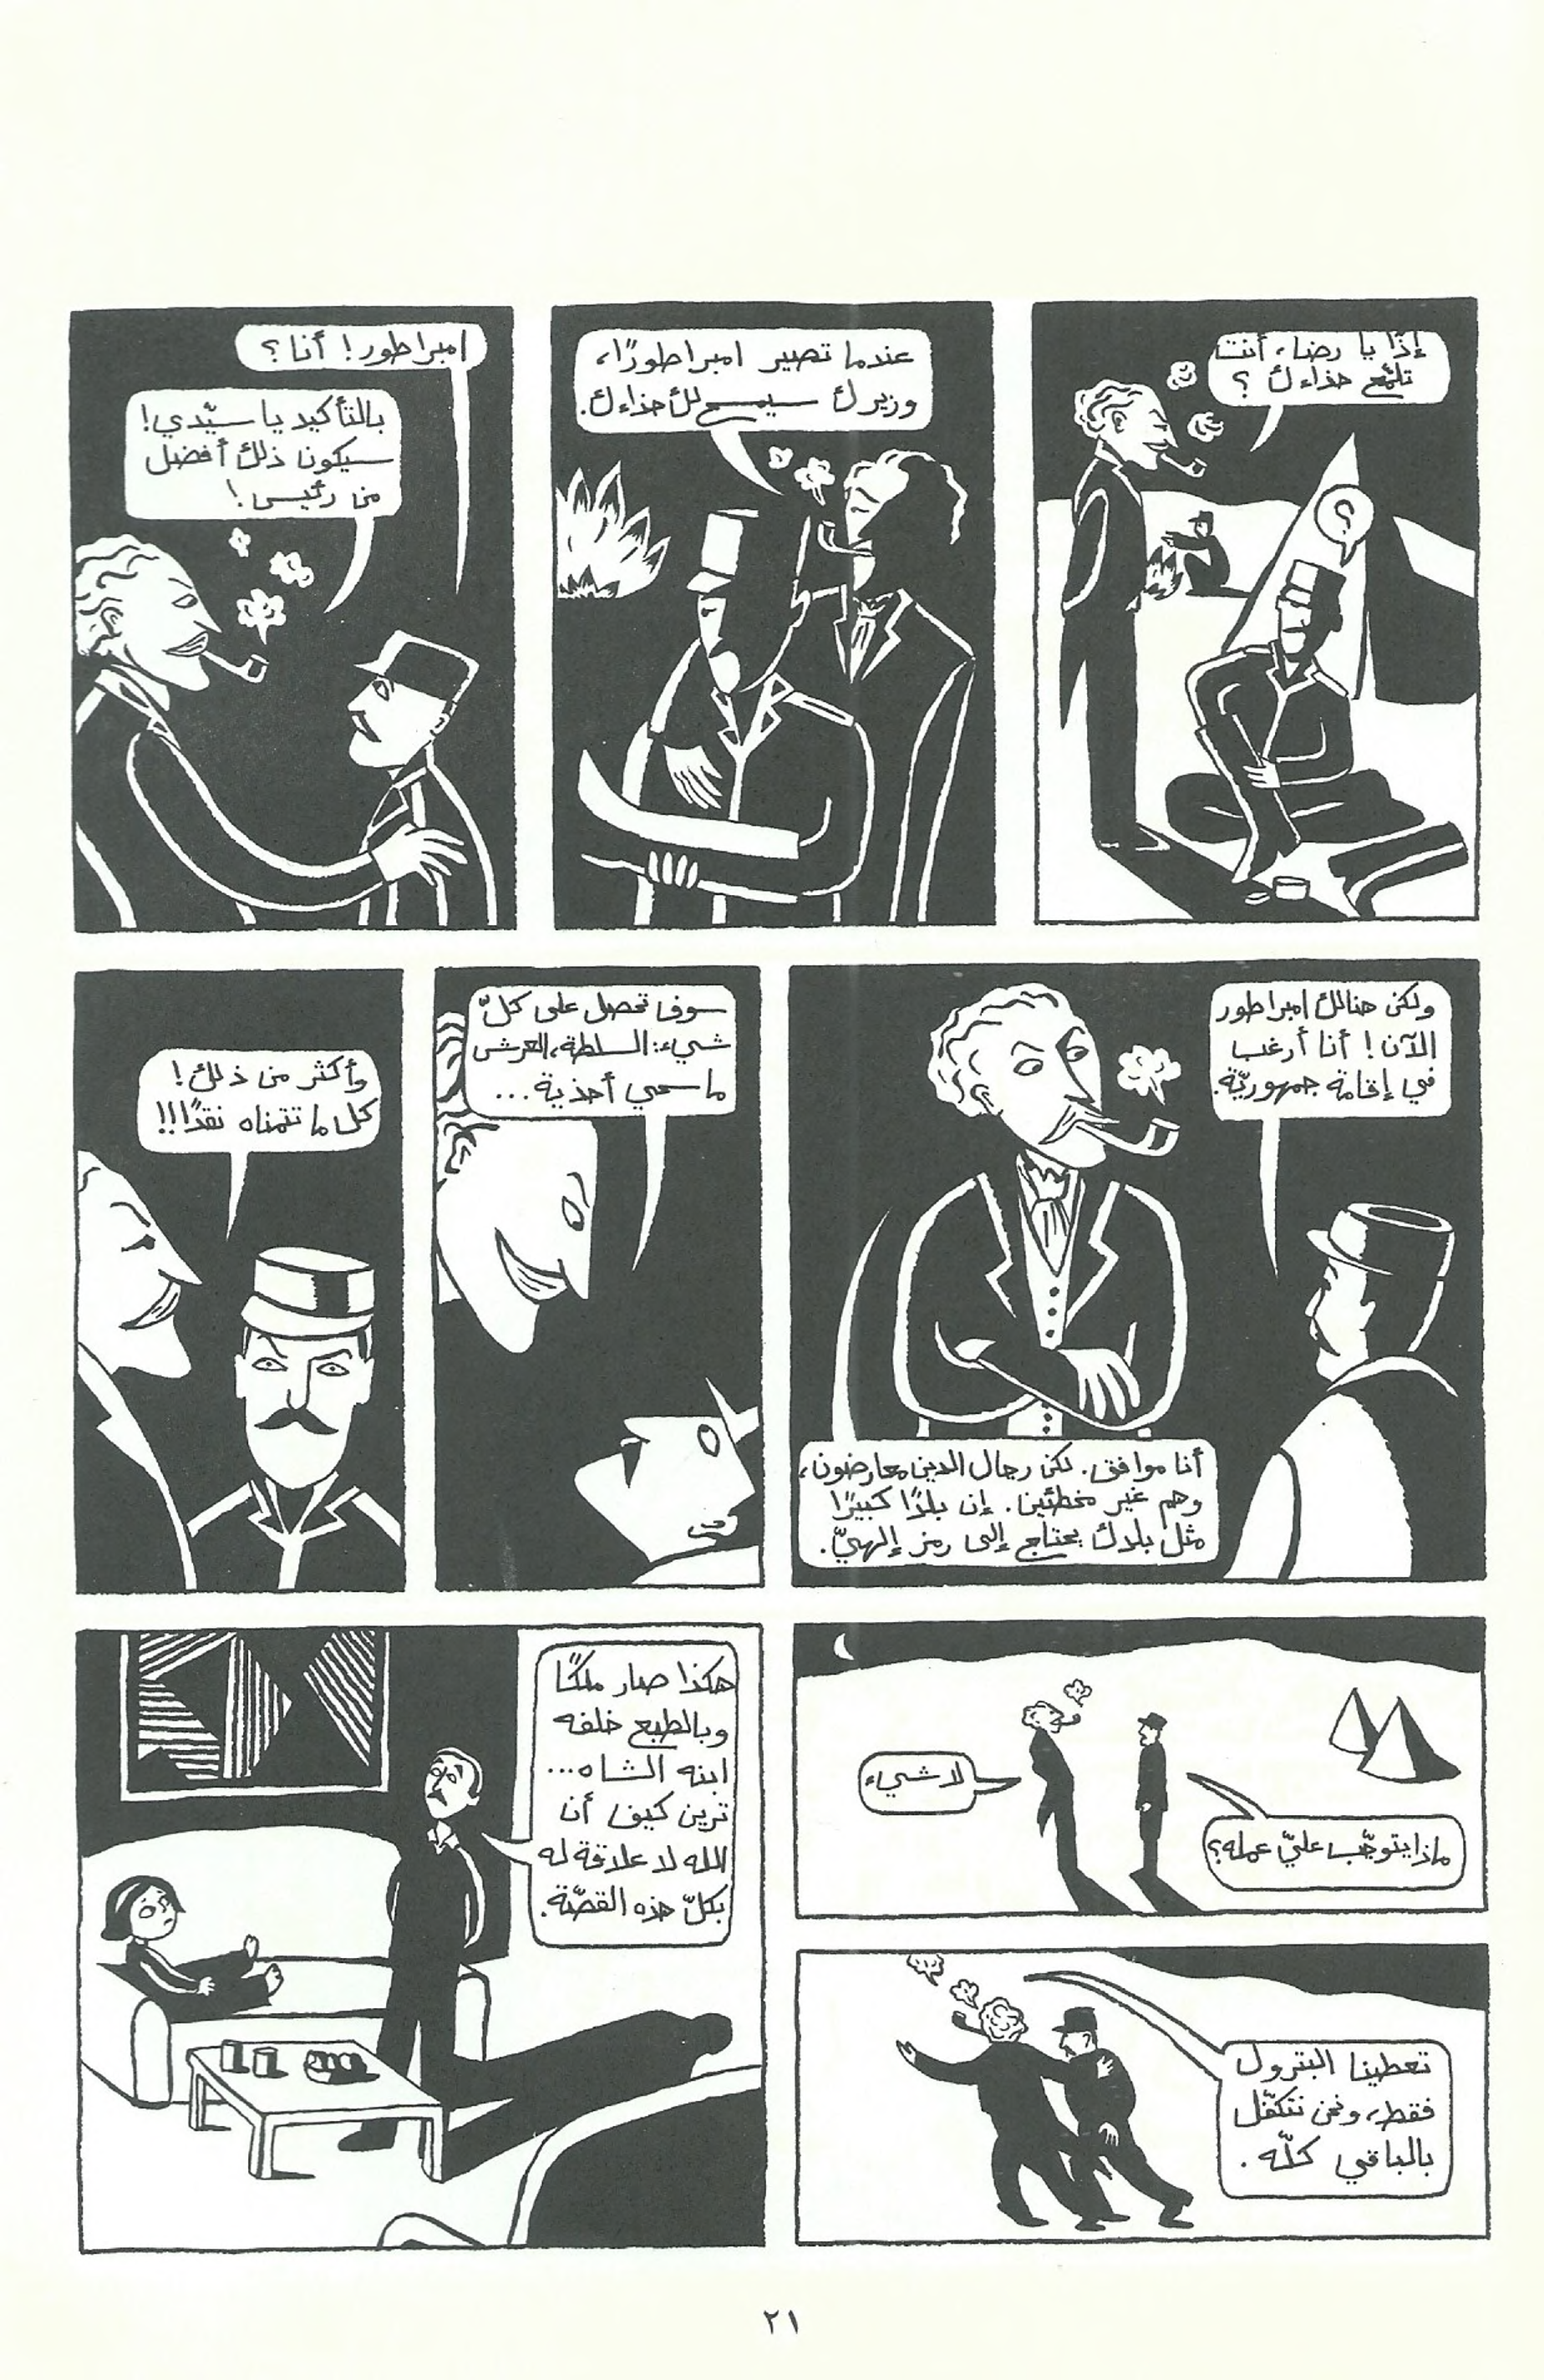 إذًا يا رضا، أنت
تلمّع حذاءك ؟
؟
عندما تصير امبراطورًا،
وزيرك سيمسح لك حذاءك.
امبراطور! أنا ؟
بالتأكيد يا سيّدي!
سيكون ذلك أفضل
من رئيس!
ولكن هنالك امبراطور
الآن! أنا أرغب
في إقامة جمهوريّة.
أنا موافق. لكن رجال الدين معارضون،
وهم غير مخطئين. إن بلدًا كبيرًا
مثل بلادك يحتاج إلى رمز إلهيّ.
سوف تحصل على كلّ
شيء: السلطة، العرش
ماسحي أحذية...
وأكثر من ذلك!
كل ما تتمناه نقدًا!!!
ماذا يتوجّب عليّ عمله؟
لا شيء
تعطينا البترول
فقط، ونحن نتكفّل
بالباقي كلّه.
هكذا صار ملكًا
وبالطبع خلفه
ابنه الشاه...
ترين كيف أن
الله لا علاقة له
بكلّ هذه القصّة.
٢١